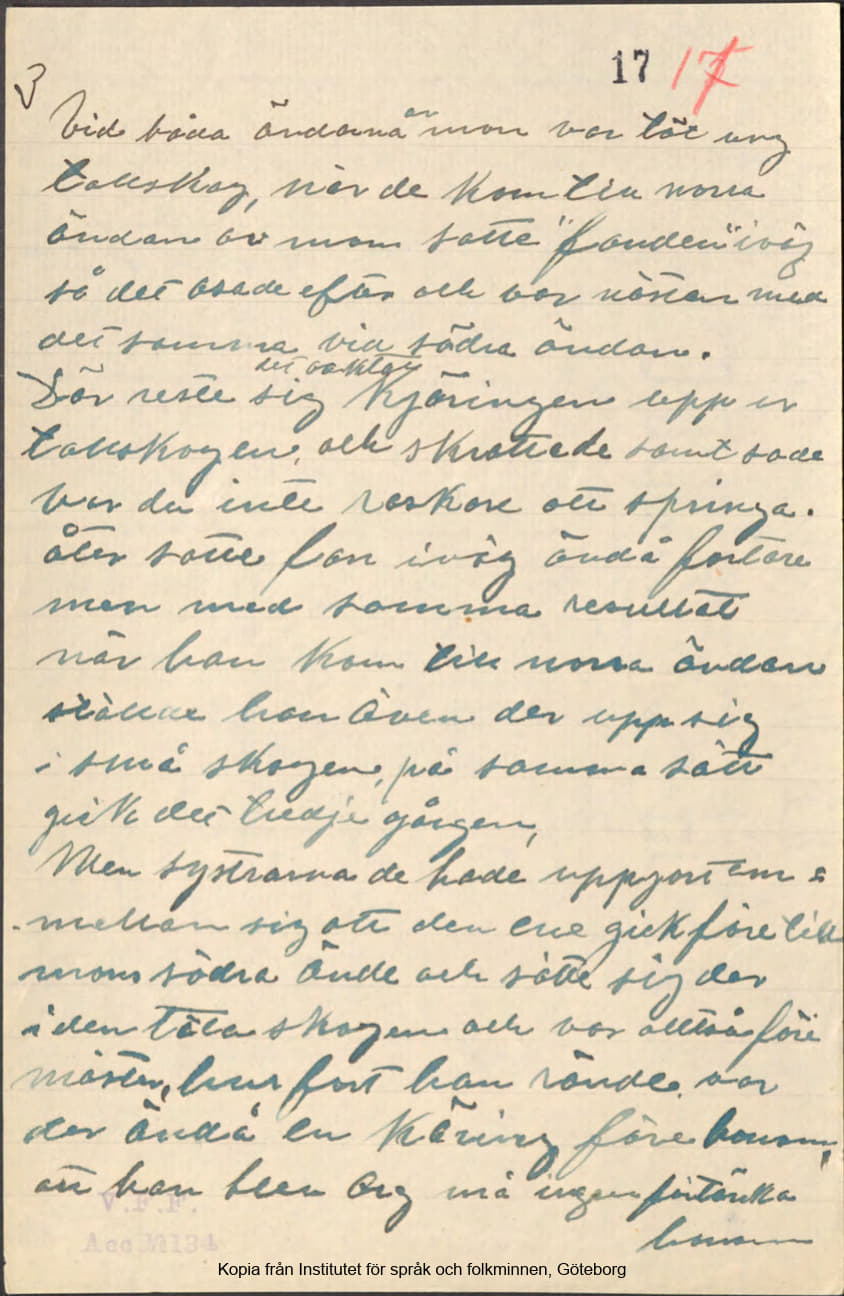 3
17 17
Vid båda ändarna av mon var tät ung
tallskog, när de kom till norra
ändan av mon satte "fanden" iväg
så det osade efter och var nästan med
det samma vid södra ändan.
det vaktar
Där reste sig Kjäringen upp ur
tallskogen, och skrattede samt sade
var du inte raskare att springa.
åter satte fan iväg ändå fortare
men med samma resultat
när han kom till norra ändan
ställde hon även der upp sig
i små skogen, på samma sätt
gick det tredje gången,
Men systrarna de hade uppgort em s
mellan sig att den ene gick före till
mons södra ände och sätte sig der
i den täta skogen och var alltså före
mäster, hur fort han rände var
der ändå en käring före honom,
att han blev arg må ingen förtänka
honom
V.F.F.
Acc M134
Kopia från Institutet för språk och folkminnen, Göteborg